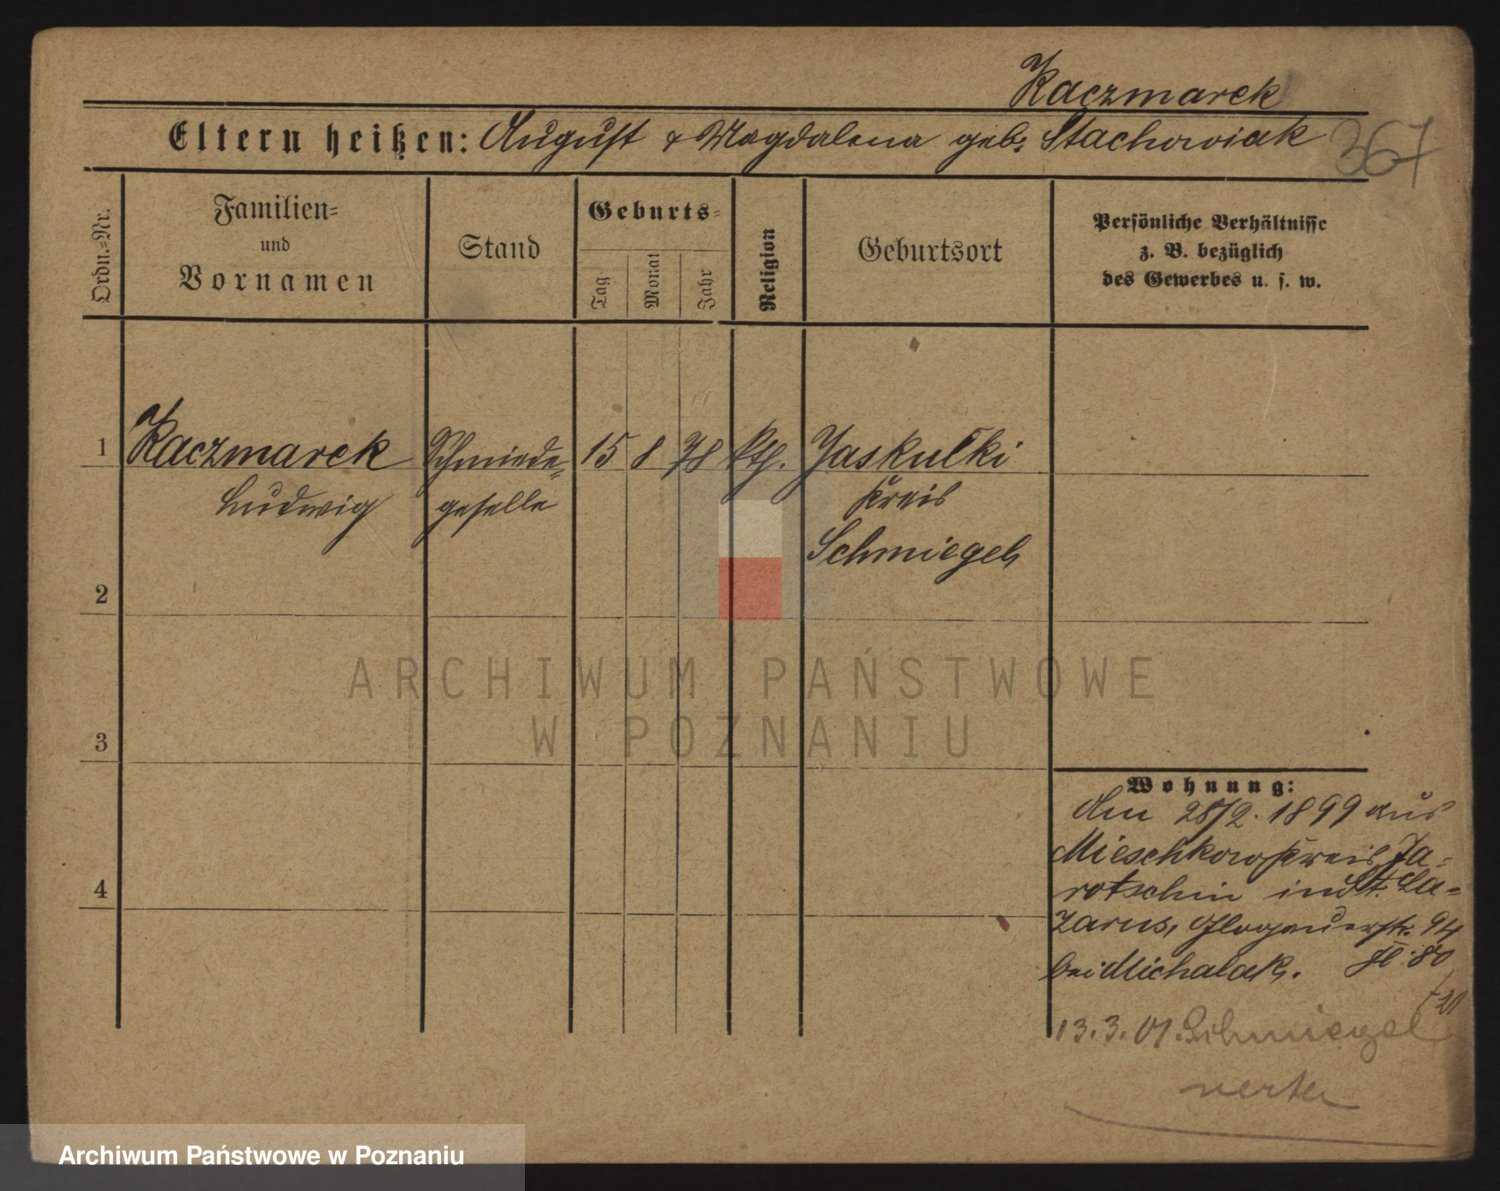 Kaczmarek
Eltern heißen: August & Magdalena geb. Stachowiak 367
Ordn.=Nr.
Familien=
und
Vornamen
Stand
Geburts=
Tag
Monat
Jahr
Religion
Geburtsort
Persönliche Verhältnisse
z. B. bezüglich
des Gewerbes u. s. w.
1 Kaczmarek Schmiede= 15 8 78 kth. Jaskulki
Ludwig geselle Kreis
Schmiegel
2
3
4
ARCHIWUM PAŃSTWOWE
W POZNANIU
Wohnung:
Am 28/2. 1899 aus
Mieschkow Kreis Ja=
rotschin in St. La=
zarus, Glogauerstr. 94
bei Michalak. 80
13.3.01. Schmiegel
Archiwum Państwowe w Poznaniu